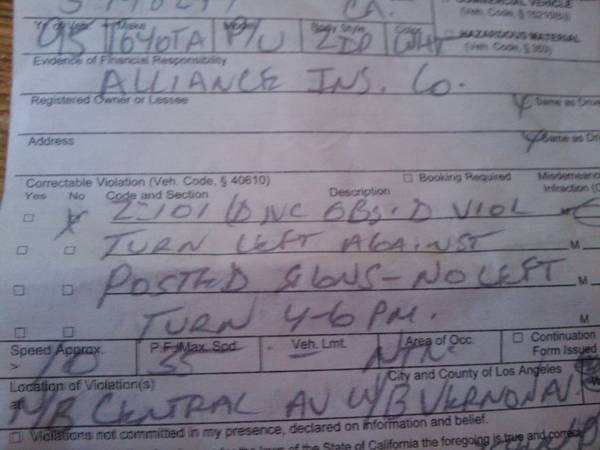 CA.
COMMERCIAL VEHICLE
(Veh. Code, § 15210(b))
95 TOYOTA P/U 2DR WHI
HAZARDOUS MATERIAL
(Veh. Code, § 353)
Evidence of Financial Responsibility
ALLIANCE INS. Co.
Registered Owner or Lessee
Same as Driv
Address
Same as Dri
Correctable Violation (Veh. Code, § 40610) Booking Required Misdemeano
Yes No Code and Section Description Infraction (C
VC OBS. D VIOL
TURN LEFT AGAINST M
POSTED SIGNS - NO LEFT M
TURN 4-6 PM. M
Speed Approx. P.F./Max. Spd. Veh. Lmt. Area of Occ. Continuation
Form Issued
> 10 35 NTN
Location of Violation(s) City and County of Los Angeles
at N/B CENTRAL AV W/B VERNON AV.
Violations not committed in my presence, declared on information and belief.
of the State of California the foregoing is true and correc